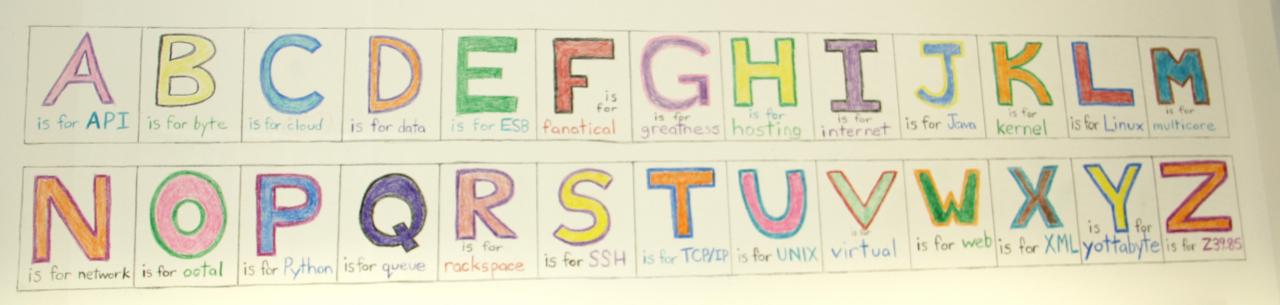 A is for API
B is for byte
C is for cloud
D is for data
E is for ESB
F is for fanatical
G is for greatness
H is for hosting
I is for internet
J is for Java
K is for kernel
L is for Linux
M is for multicore
N is for network
O is for octal
P is for Python
Q is for queue
R is for rackspace
S is for SSH
T is for TCP/IP
U is for UNIX
V is for virtual
W is for web
X is for XML
Y is for yottabyte
Z is for Z39.85